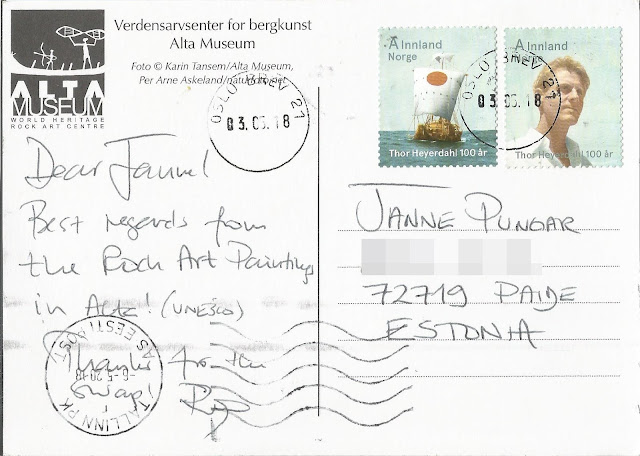 ALTA
MUSEUM
WORLD HERITAGE
ROCK ART CENTRE
Verdensarvsenter for bergkunst
Alta Museum
Foto © Karin Tansem/Alta Museum,
Per Arne Askeland/naturfoto.net
A Innland
Norge
Thor Heyerdahl 100 år
A Innland
Thor Heyerdahl 100 år
OSLO BREV 21
03.05.18
OSLO BREV 21
03.05.18
Dear Janne!
Best regards from
the Rock Art Paintings
in Alta! (UNESCO)
Thanks from the
swap!
JANNE PUNGAR
72719 PAIDE
ESTONIA
TALLINN PK
AS EESTI POST
-6.-5.2018